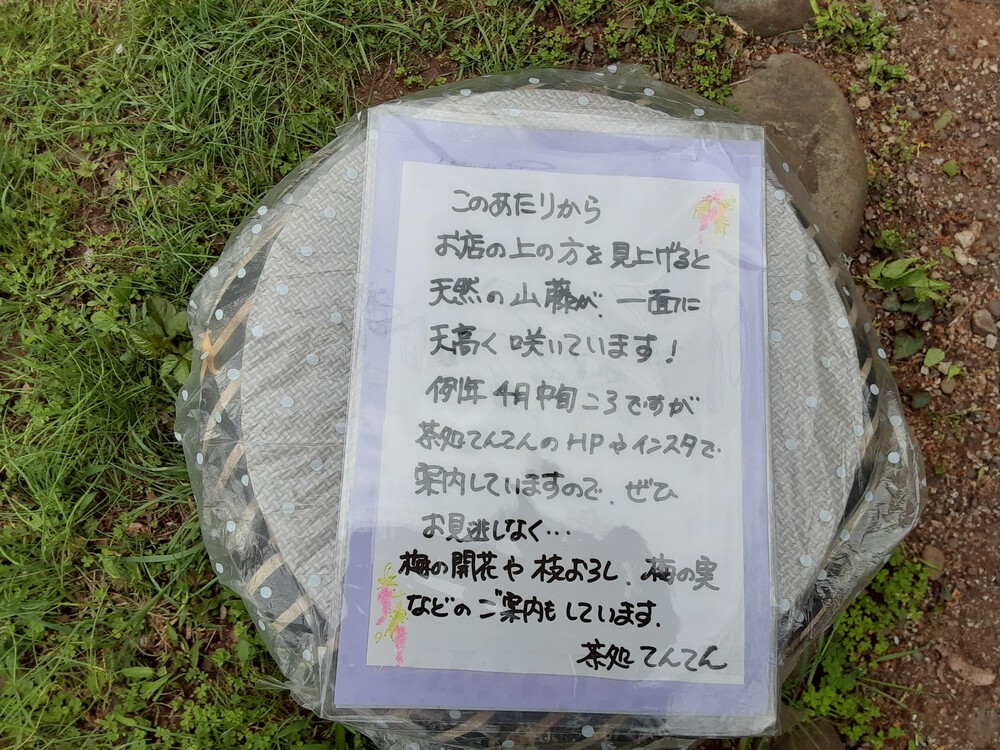 このあたりから
お店の上の方を見上げると
天然の山藤が、一面に
天高く咲いています!
例年4月中旬ころですが
茶処てんてんのHPやインスタで
案内していますので、ぜひ
お見逃しなく…
梅の開花や枝よろし、梅の実
などのご案内もしています。
茶処てんてん